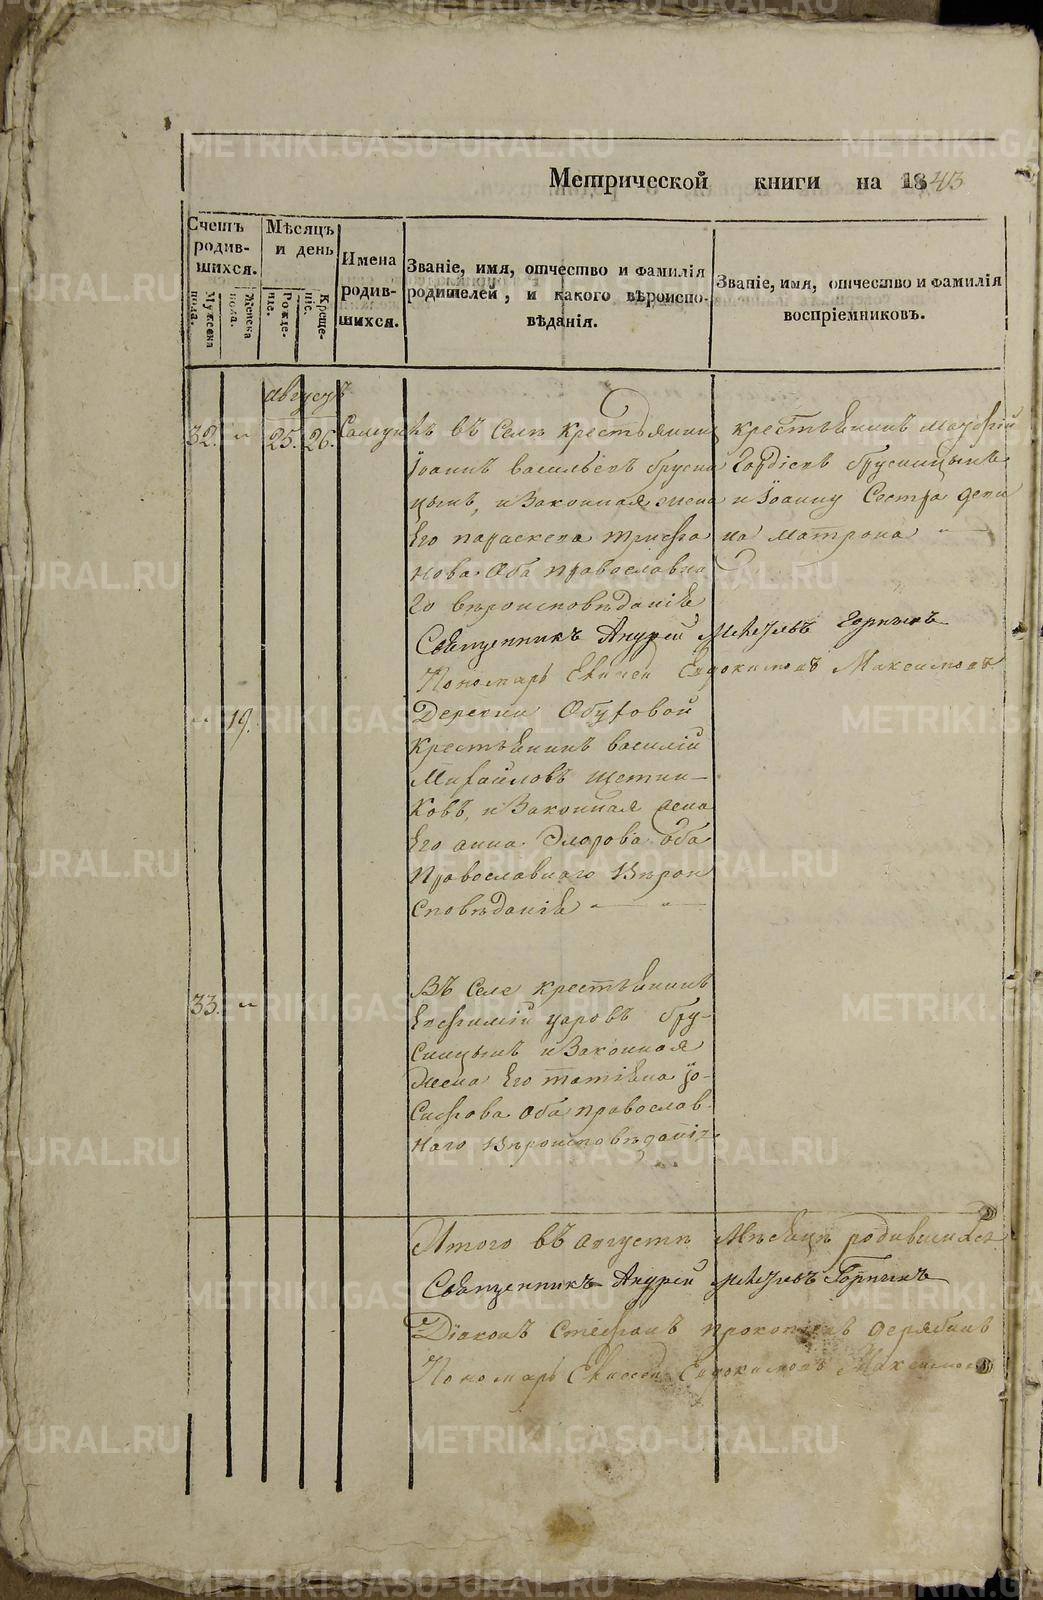 Метрической книги на 1843
Счетъ родив-шихся.
Мужеска пола.
Женска пола.
Мѣсяцъ и день
Рожде-ніе.
Креще-ніе.
Имена родив-шихся.
Званіе, имя, отчество и фамилія
родителей, и какого вѣроиспо-
вѣданія.
Званіе, имя, отчество и фамилія
воспріемниковъ.
августъ
32. " 25. 26. Самуилъ
въ Селѣ крестьянинъ
Іоаннъ васильевъ бруسни
цынъ, и Законная жена
Его параскева трифо
нова Оба православна
го вѣроисповѣданія
крестьянинъ
Гордіевъ брусницынъ
и Іоанну Сестра деви
ца матрона
Священникъ Андрей Горныхъ
Пономарь Евдокимовъ Максимовъ
19.
Деревни Обуховой
Крестьянинъ василій
Михайловъ щетни-
ковъ, и Законная жена
Его анна оба
Православнаго Вѣрои
сповѣданія
33. "
Въ Селе крестьянинъ
Евфимій бру-
сницынъ и Законная
Жена Его татіана Іо-
сифова Оба православ
наго Вѣроисповѣданія
Итого въ августѣ Мѣсяцѣ родившихся
Священникъ Андрей Горныхъ
Діаконъ Стефанъ прокопьевъ дерябинъ
Пономарь Евдокимовъ Максимовъ
METRIKI.GASO-URAL.RU